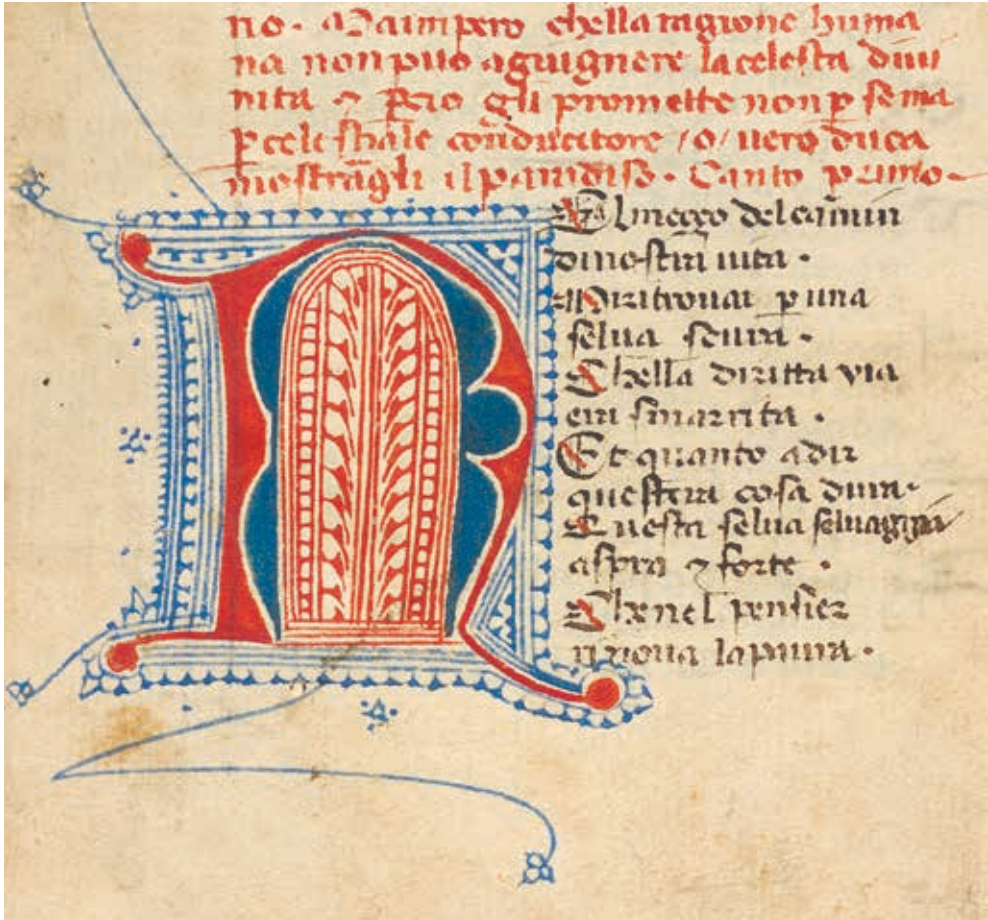 no. Ma impero chella ragione huma
na non puo agiugnere la celesta diui
nita ⁊ ꝑcio gli promette non ꝑ se ma
ꝑ celestiale conducitore /o/ uero duca
mostragli il paradiso. Canto primo.
N El meҫҫo del camin
di nostra uita.
Mi ritrouai ꝑ una
selua scura.
Chella diritta via
era smarrita.
Et quanto a dir
quellera cosa dura.
Questa selua seluaggia
aspra ⁊ forte.
Che nel pensier
rinoua la paura.